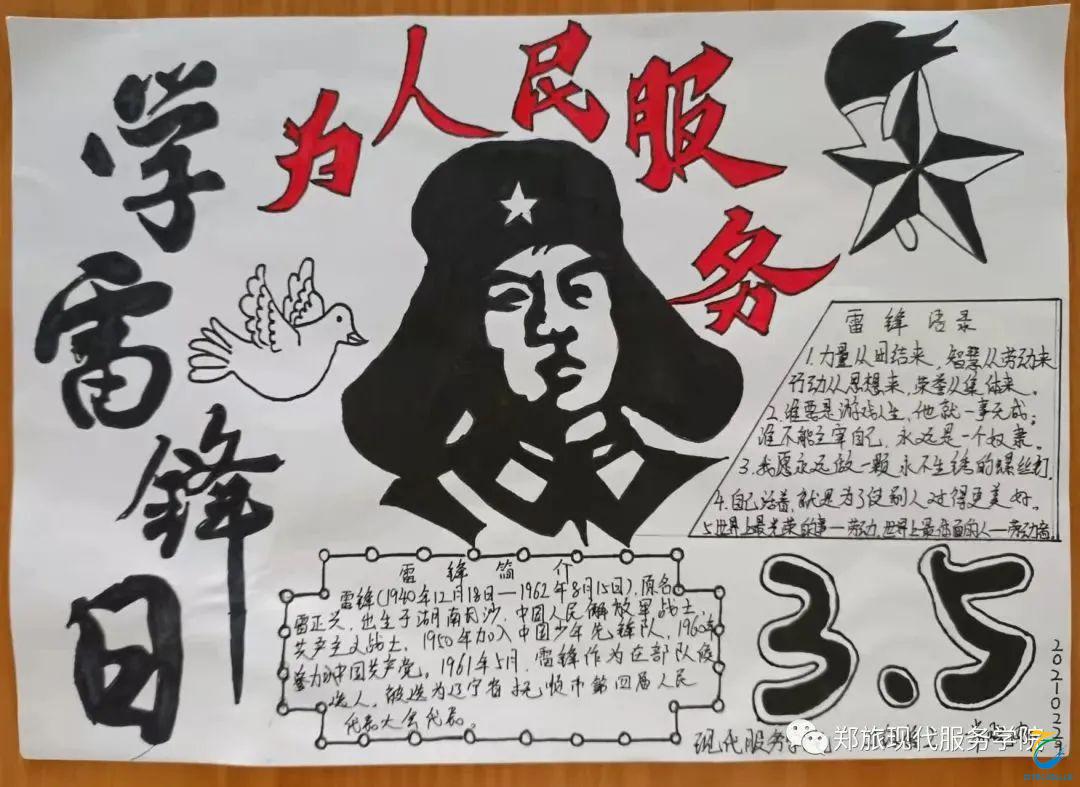 学雷锋日
为人民服务
雷锋语录
1.力量从团结来，智慧从劳动来
行动从思想来，荣誉从集体来。
2.谁要是游戏人生，他就一事无成；
谁不能主宰自己，永远是一个奴隶。
3.我愿永远做一颗永不生锈的螺丝钉
4.自己活着，就是为了使别人过得更美好。
5.世界上最光荣的事—劳动，世界上最体面的人—劳动者。
雷锋简介
雷锋(1940年12月18日—1962年8月15日)，原名
雷正兴，出生于湖南长沙，中国人民解放军战士，
共产主义战士，1950年加入中国少年先锋队，1960年
参加中国共产党。1961年5月，雷锋作为所在部队候
选人，被选为辽宁省抚顺市第四届人民
代表大会代表。
3.5
20210229
现代服务学
郑旅现代服务学院